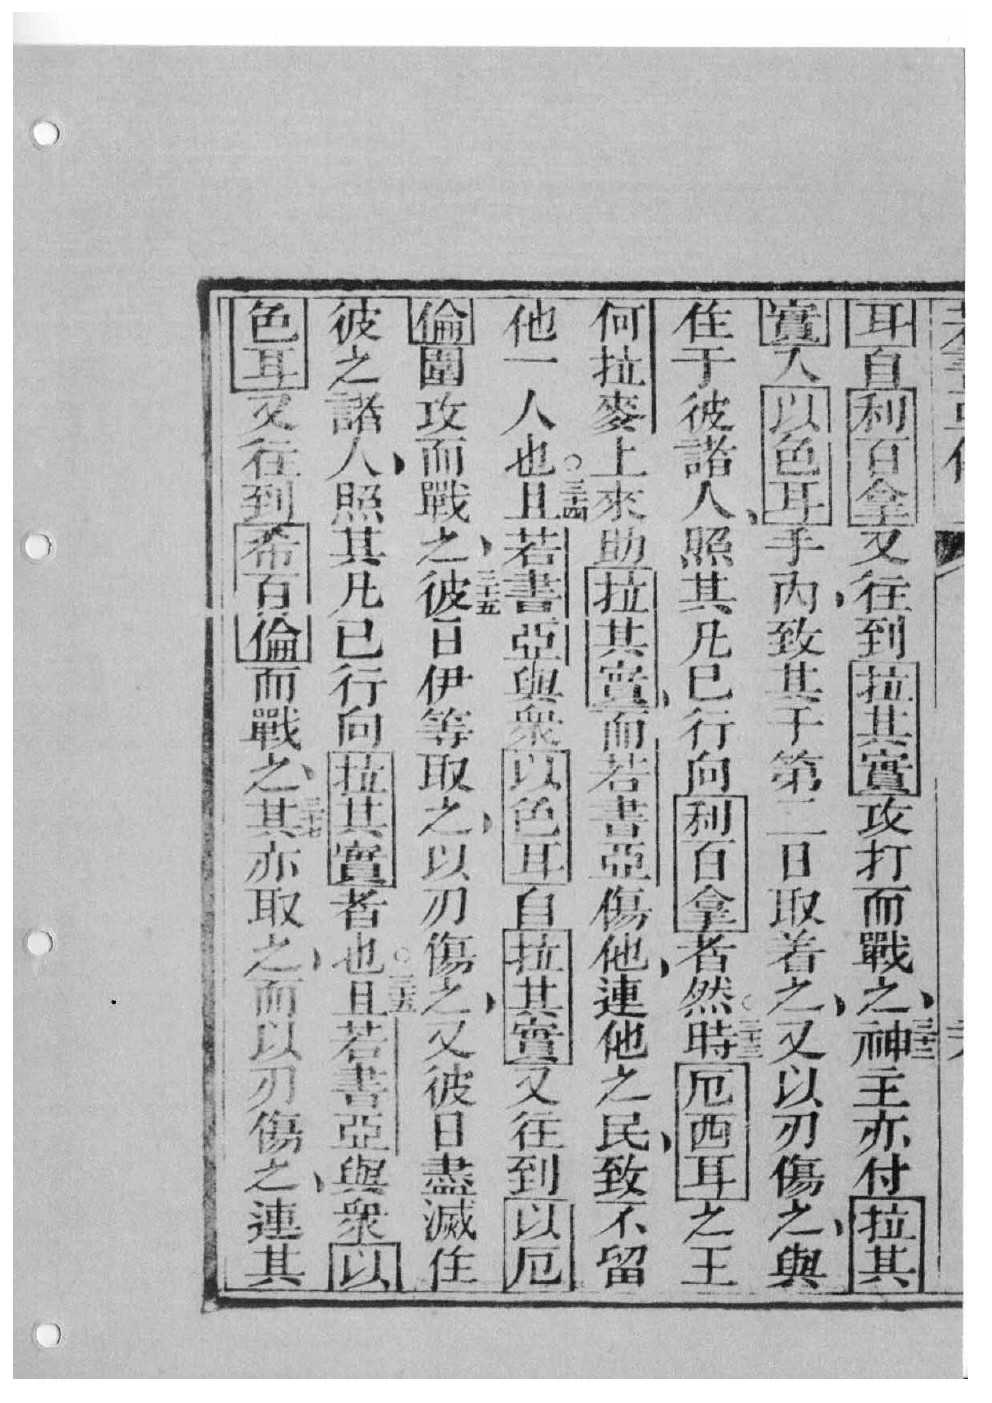 若書亞傳
耳自利百拿又往到拉其實攻打而戰之三十二神主亦付拉其
實人以色耳手內致其于第二日取着之又以刃傷之與
住于彼諸人照其凡已行向利百拿者然○三十三時厄西耳之王
何拉麥上來助拉其實而若書亞傷他連他之民致不留
他一人也○三十四且若書亞與衆以色耳自拉其實又往到以厄
倫圍攻而戰之三十五彼日伊等取之以刃傷之又彼日盡滅住
彼之諸人照其凡已行向拉其實者也○三十五且若書亞與衆以
色耳又往到希百倫而戰之三十七其亦取之而以刃傷之連其